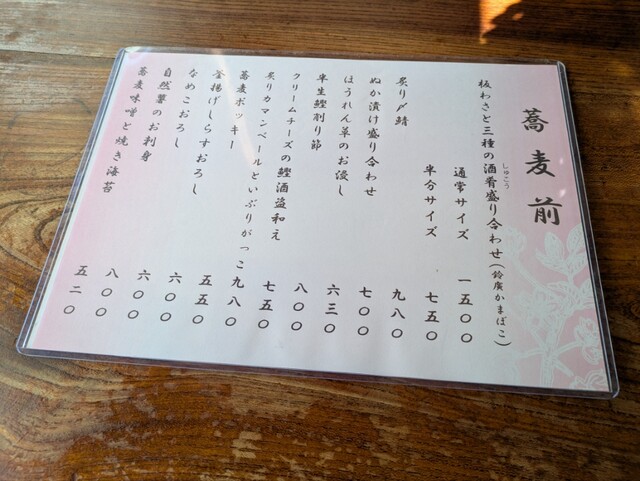 蕎麦前
板わさと三種の酒肴盛り合わせ(鈴廣かまぼこ)
しゅこう
通常サイズ 一五〇〇
半分サイズ 七五〇
炙り〆鯖 九八〇
ぬか漬け盛り合わせ 七〇〇
ほうれん草のお浸し 六三〇
半生鰹削り節 八〇〇
クリームチーズの鰹酒盗和え 七五〇
炙りカマンベールといぶりがっこ 九八〇
蕎麦ポッキー 五五〇
釜揚げしらすおろし 六〇〇
なめこおろし 六〇〇
自然薯のお刺身 八〇〇
蕎麦味噌と焼き海苔 五二〇